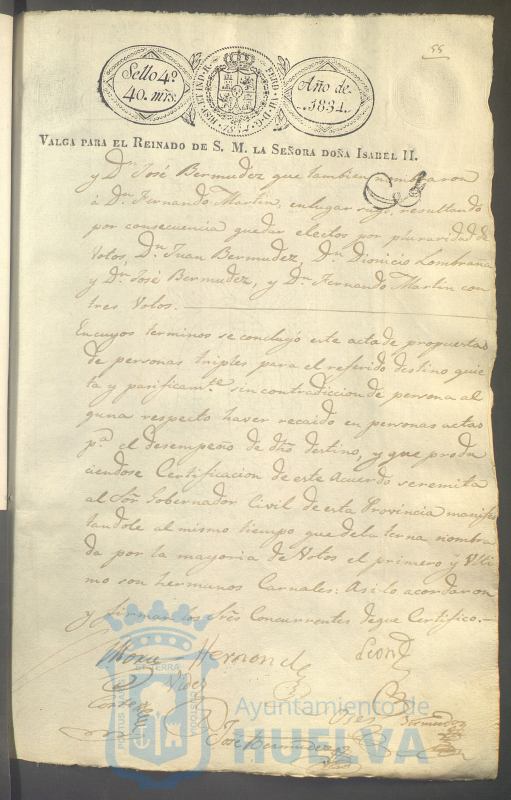 55
Sello 4º
40. mrs.
Año de
1834.
VALGA PARA EL REINADO DE S. M. LA SEÑORA DOÑA ISABEL II.
y Dn. José Bermudez que tambien nombraron
á Dn. Fernando Martin, en lugar suyo, resultando
por consecuencia quedar electos por pluraridad de
Votos, Dn. Juan Bermudez, Dn. Dionicio Lombraña
y Dn. José Bermudez, y Dn. Fernando Martin con
tres Votos.
En cuyos terminos se concluyó este acta de propuestas
de personas triples para el referido destino quie
ta y pacificamte. sin contradiccion de persona al
guna respecto haver recaido en personas actas
pa. el desempeño de dho destino, y que produ
ciendose Certificacion de este Acuerdo se remita
al Sor. Gobernador Civil de esta Provincia manifes
tandole al mismo tiempo que de la terna nombra
da por la mayoria de Votos el primero y Ulti
mo son hermanos Carnales: Asi lo acordaron
y firman los Sres Concurrentes de que Certifico.
Mora Hernandez Leon
Cortes
Bermudez
José Bermudez
Ayuntamiento de
HUELVA